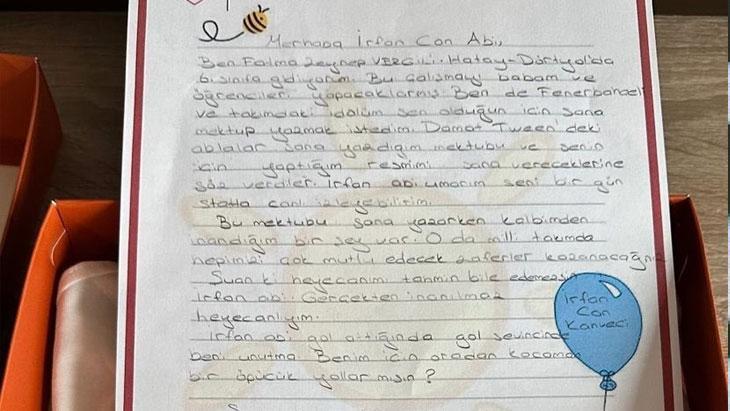 Merhaba İrfan Can Abi,
Ben Fatma Zeynep VERGİLİ. Hatay-Dörtyol'da
6. sınıfa gidiyorum. Bu çalışmayı babam ve
öğrencileri yapacaklarmış. Ben de Fenerbahçeli
ve takımdaki idolüm sen olduğun için sana
mektup yazmak istedim. Damat Tween'deki
ablalar sana yazdığım mektubu ve senin
için yaptığım resmimi sana vereceklerine
söz verdiler. İrfan abi umarım seni bir gün
statta canlı izleyebilirim.
Bu mektubu sana yazarken kalbimden
inandığım bir şey var. O da milli takımda
hepimizi çok mutlu edecek zaferler kazanacağınız
Şuan ki heyecanımı tahmin bile edemezsin
İrfan abi. Gerçekten inanılmaz
heyecanlıyım.
İrfan abi gol attığında gol sevincinde
beni unutma. Benim için oradan kocaman
bir öpücük yollar mısın?
İrfan
Can
Kahveci